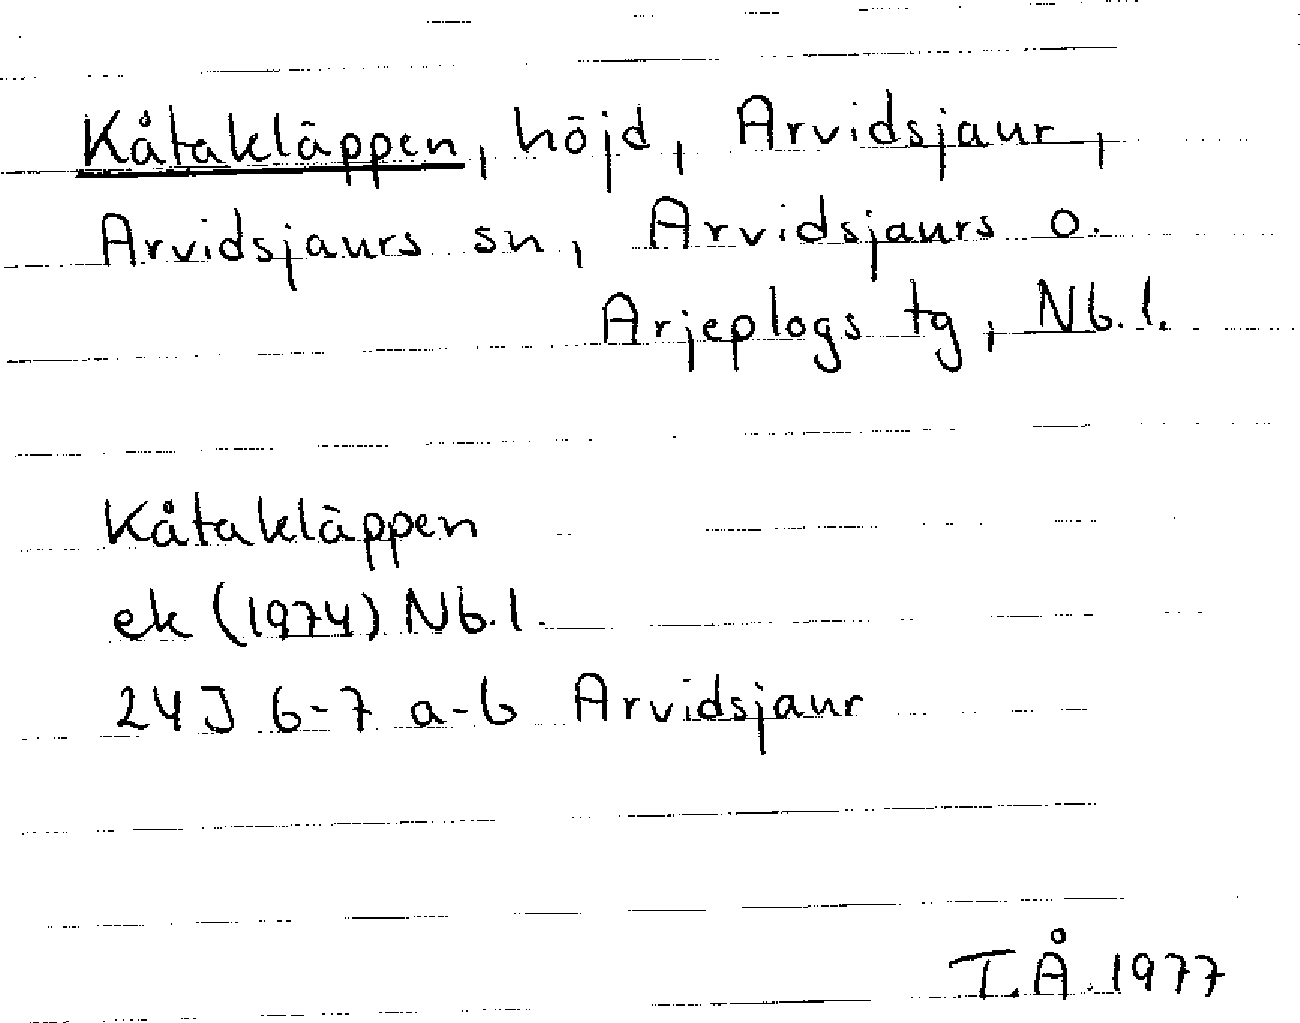 Kåtakläppen, höjd, Arvidsjaur,
Arvidsjaurs sn, Arvidsjaurs o.
Arjeplogs tg, Nb.l.
Kåtakläppen
ek (1974) Nb.l.
24J 6-7 a-b Arvidsjaur
T.Å.1977